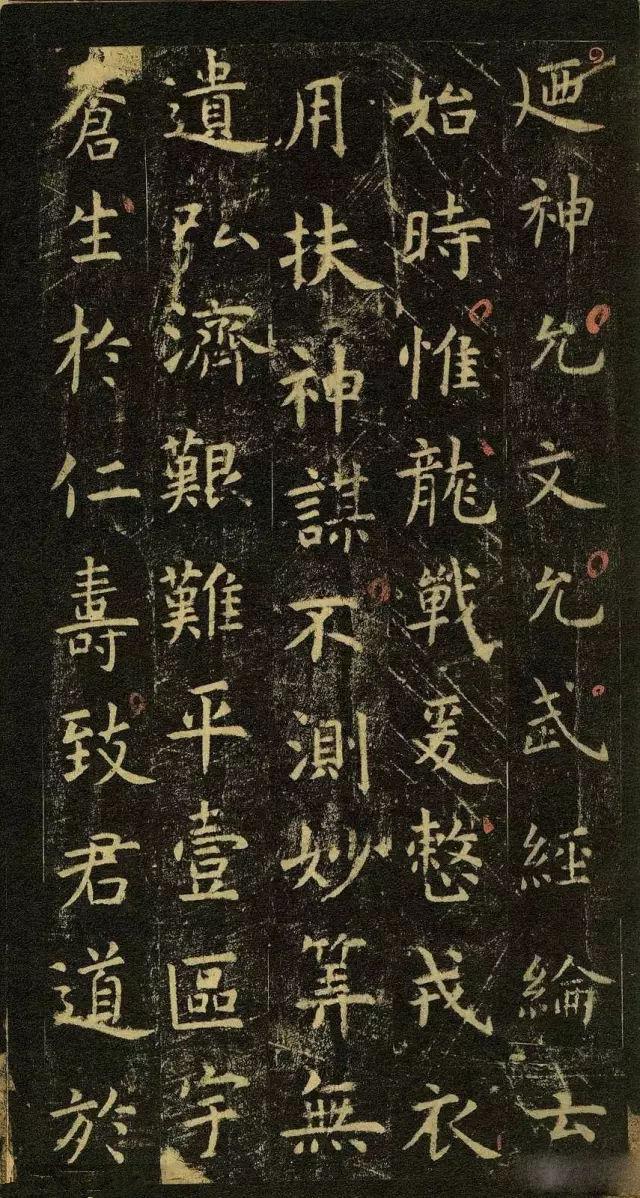 廼神允文允武經綸云
始時惟龍戰爰整戎衣
用扶神謀不測妙筭無
遺弘濟艱難平壹區宇
倉生於仁壽致君道於